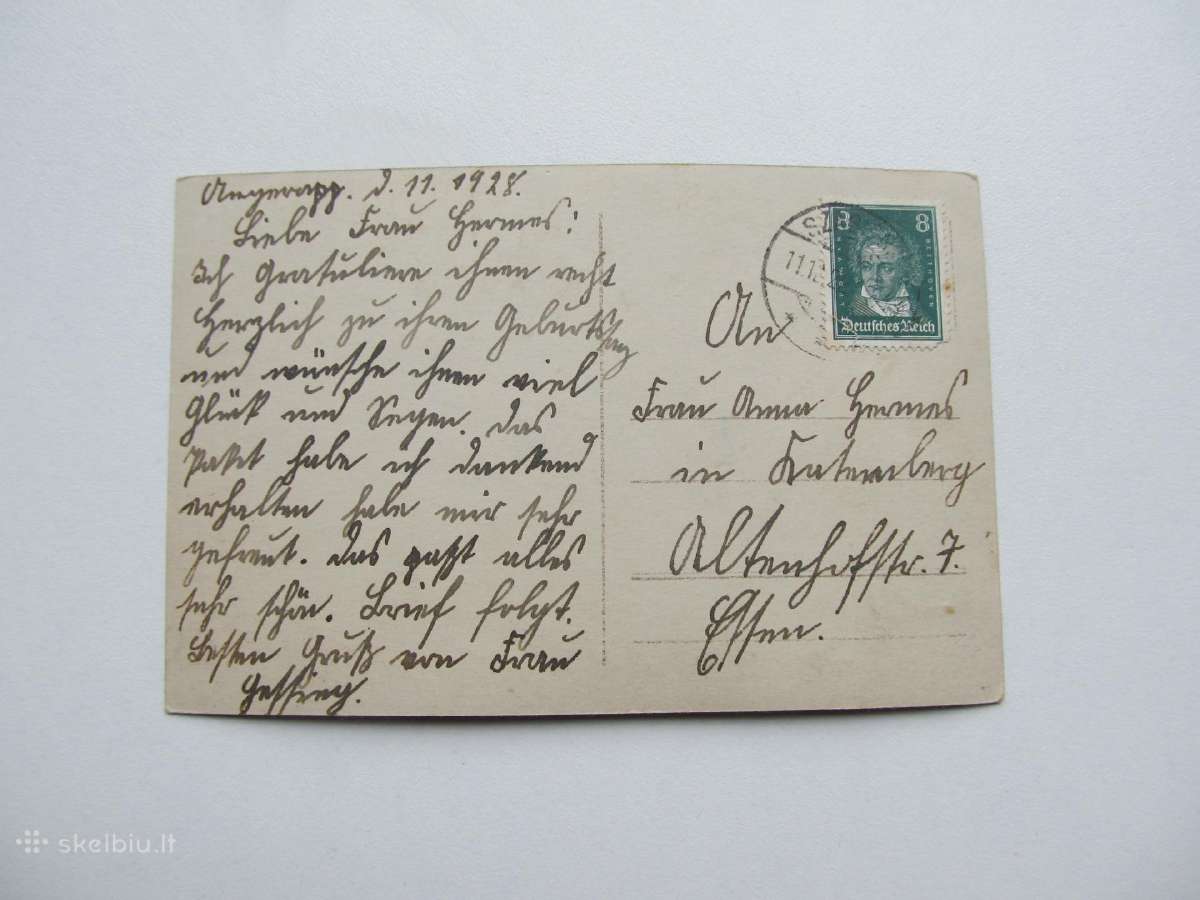 Angerapp. d. 11. 1928.
Liebe Frau Hermes!
Ich Gratuliere ihnen recht
Herzlich zu ihren Geburtstag
und wünsche ihnen viel
Glück und Segen. Das
Paket habe ich dankend
erhalten habe mir sehr
gefreut. Das paßt alles
sehr schön. Brief folgt.
Besten Gruß von Frau
An
Frau Anna Hermes
in Katernberg
Altenhofstr. 7.
Essen.
8 8
LUDWIG VAN BEETHOVEN
Deutsches Reich
skelbiu.lt